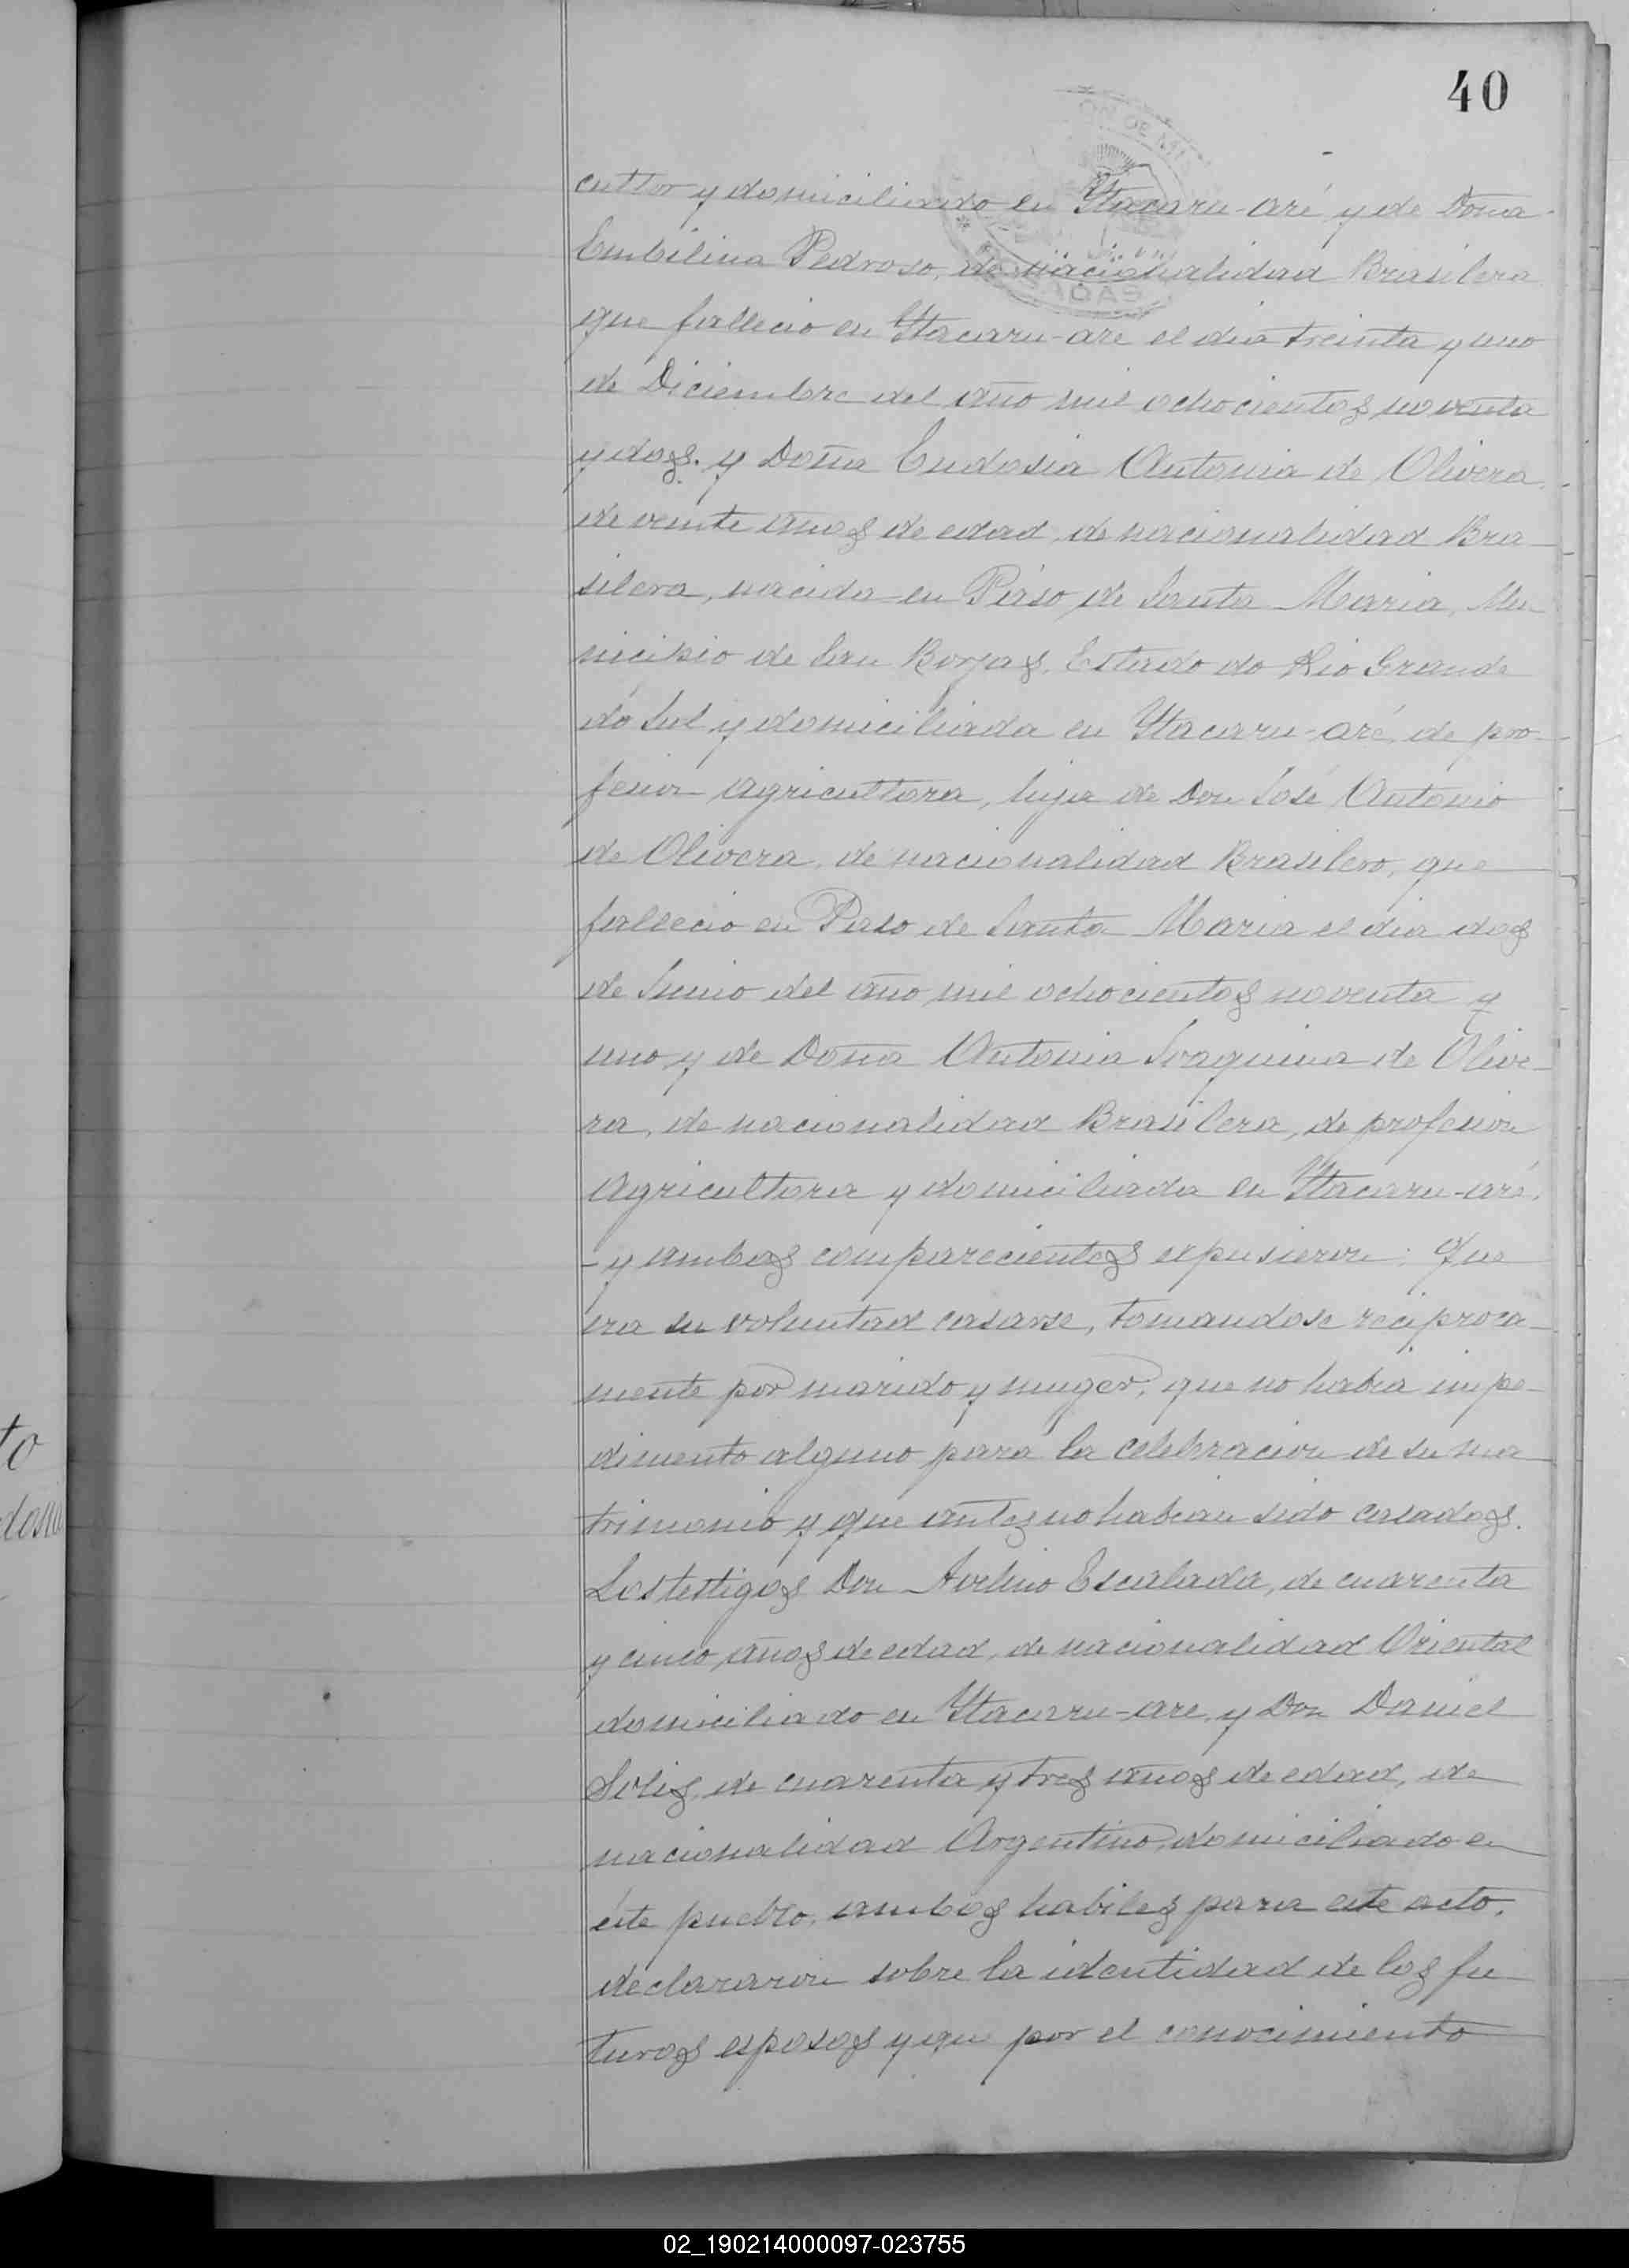 40
cultor y domiciliado en Ytacaru-aré y de Doña
Embilina Pedroso, de nacionalidad Brasilera
que fallecio en Ytacaru-are el dia treinta y uno
de Diciembre del año mil ochocientos noventa
y dos. y Doña Eudosia Antonia de Olivera
de veinte años de edad, de nacionalidad Bra-
silera, nacida en Paso de Santa Maria, Mu-
nicipio de San Borjas, Estado do Rio Grande
dó Sul y domiciliada en Ytacaru-aré, de pro-
fesion agricultora, hija de Don José Antonio
de Olivera, de nacionalidad Brasilero, que
fallecio en Paso de Santa Maria el dia dos
de Junio del año mil ochocientos noventa y
uno y de Doña Antonia Joaquina de Olive-
ra, de nacionalidad Brasilera, de profesion
Agricultora y domiciliada en Ytacaru-aré,
- y ambos comparecientes expusieron: Que
era su voluntad casarse, tomandose reciproca-
mente por marido y muger, que no habia impe-
dimento alguno para la celebracion de su ma-
trimonio y que antes no habian sido casados.
Los testigos Don Avelino Escalada, de cuarenta
y cinco años de edad, de nacionalidad Oriental
domiciliado en Ytacaru-are, y Don Daniel
Solis, de cuarenta y tres años de edad, de
nacionalidad Argentino, domiciliado en
éste pueblo, ambos habiles para este acto,
declararon sobre la identidad de los fu-
turos esposos y que por el conocimiento
to
dosia
02_190214000097-023755